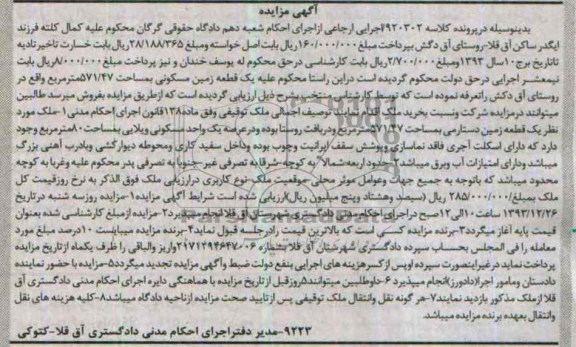 آگهی مزایده
بدینوسیله درپرونده کلاسه ۹۲۰۳۰۲/اجرایی ارجاعی ازاجرای احکام شعبه دهم دادگاه حقوقی گرگان محکوم علیه کمال کلته فرزند
ایگدر ساکن آق قلا-روستای آق دگش بپرداخت مبلغ۱۶۰/۰۰۰/۰۰۰ریال بابت اصل خواسته ومبلغ۲۸/۱۸۸/۳۶۵ریال بابت خسارت تاخیر تادیه
تاتاریخ برج۱۰سال ۱۳۹۳ومبلغ۲/۷۰۰/۰۰۰ریال بابت کارشناسی درحق محکوم له یوسف خندان و نیز پرداخت مبلغ۸۰۰۰/۰۰۰ریال بابت
نیمعشر اجرایی درحق دولت محکوم گردیده است دراین راستا محکوم علیه یک قطعه زمین مسکونی بمساحت ۵۷۱/۴۷مترمربع واقع در
روستای آق دکش راتعرفه نموده است که توسط کارشناس منتخب بشرح ذیل ارزیابی گردیده است که ازطریق مزایده بفروش میرسد طالبین
میتوانند درمزایده شرکت ونسبت بخرید ملک اقدام نمایند توصیف اجمالی ملک توقیفی وفق ماده۱۳۸قانون اجرای احکام مدنی۱-ملک مورد
نظر یک قطعه زمین دسترمی بمساحت ۵۷۱/۴۷مترمربع ودربافت روستا بوده ودرعرصه یک واحد مسکونی ویلایی بمساحت۸۰مترمربع وجود
دارد که دارای اسکلت آجری فاقد نماسازی وپوشش سقف ایرانیت وچوب بوده وداخل سفید کاری ومحوطه دیوارکشی وبادرب آهنی بزرگ
میباشد ودارای امتیازات آب وبرق میباشد۲-حدود اربعه:شمالا به کوچه-شرقا به تصرفی غیر-جنوبا به تصرفی پدر محکوم علیه وغربا به کوچه
محدود میباشد که باتوجه به جمیع جهات وعوامل موثر محلی-موقعیت ملک-نوع کاربری درارزیابی ملک فوق الذکر به نرخ روزقیمت کل
ملک بمبلغ۲۸۵/۰۰۰/۰۰۰ریال(سیصد وهشتاد وپنج میلیون ریال)ارزیابی شده است شرایط آگهی مزایده:۱-مزایده روزسه شنبه درتاریخ
۱۳۹۳/۱۲/۲۶ ساعت۱۰الی۱۲صبح دراجرای احکام مدنی دادگستری شهرستان آق قلا انجام میپذیرد۲-مزایده ازمبلغ کارشناسی شده بعنوان
قیمت پایه آغاز میگردد۳-برنده مزایده کسی است که بالاترین قیمت رادرجلسه قبول نماید۴-برنده مزایده میبایست ۱۰درصد مبلغ مورد
معامله را فی المجلس بحساب سپرده دادگستری شهرستان آق قلا بشماره ۲۱۷۱۲۹۴۶۴۷۰۰۶واریز والباقی را ظرف یکماه ازتاریخ مزایده
پرداخت نماید درغیراینصورت سپرده اوپس از کسر هزینه های اجرایی بنفع دولت ضبط وآگهی مزایده تجدید میگردد۵-مزایده باحضور نماینده
دادستان ومامور اجرا(دادورز)انجام میپذیرد۶-داوطلبین میتوانند۵روزقبل ازتاریخ مزایده با هماهنگی دایره اجرای احکام مدنی دادگستری آق
قلا ازملک مذکور بازدید نمایند۷-هر گونه نقل وانتقال ملک توقیفی پس ازتایید صحت مزایده ازناحیه دادگاه میباشد۸-کلیه هزینه های نقل
وانتقال بعهده برنده مزایده میباشد.
۹۲۲۳-مدیر دفتراجرای احکام مدنی دادگستری آق قلا-کتوکی